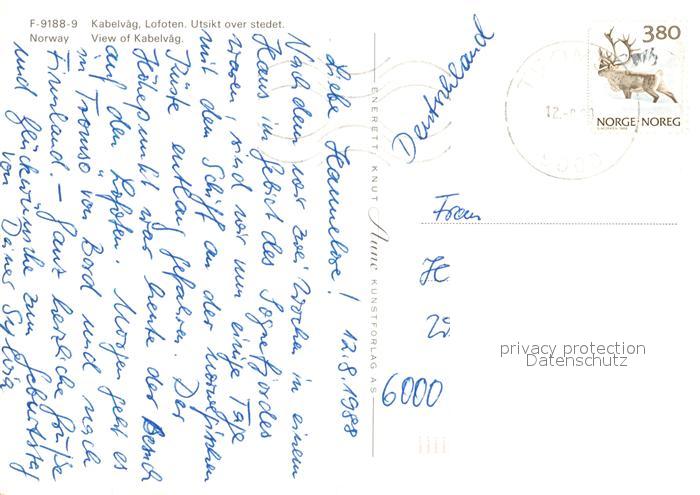 F-9188-9 Kabelvåg, Lofoten. Utsikt over stedet.
Norway View of Kabelvåg.
Liebe Hannelore! 12.8.1988
Nachdem wir zwei Wochen in einem
Haus im Gebiet des Sognefjordes
waren, sind wir nun einige Tage
mit dem Schiff an der norwegischen
Küste entlang gefahren. Der
Höhepunkt war heute der Besuch
auf den Lofoten. Morgen geht es
in Tromsö von Bord und nach
Finnland. – Ganz herzliche Grüße
und Glückwünsche zum Geburtstag
von Deiner Sylvia
ENERETT: KNUT Aune KUNSTFORLAG AS
Deutschland
380
NORGE·NOREG
Frau
H
6000
privacy protection
Datenschutz